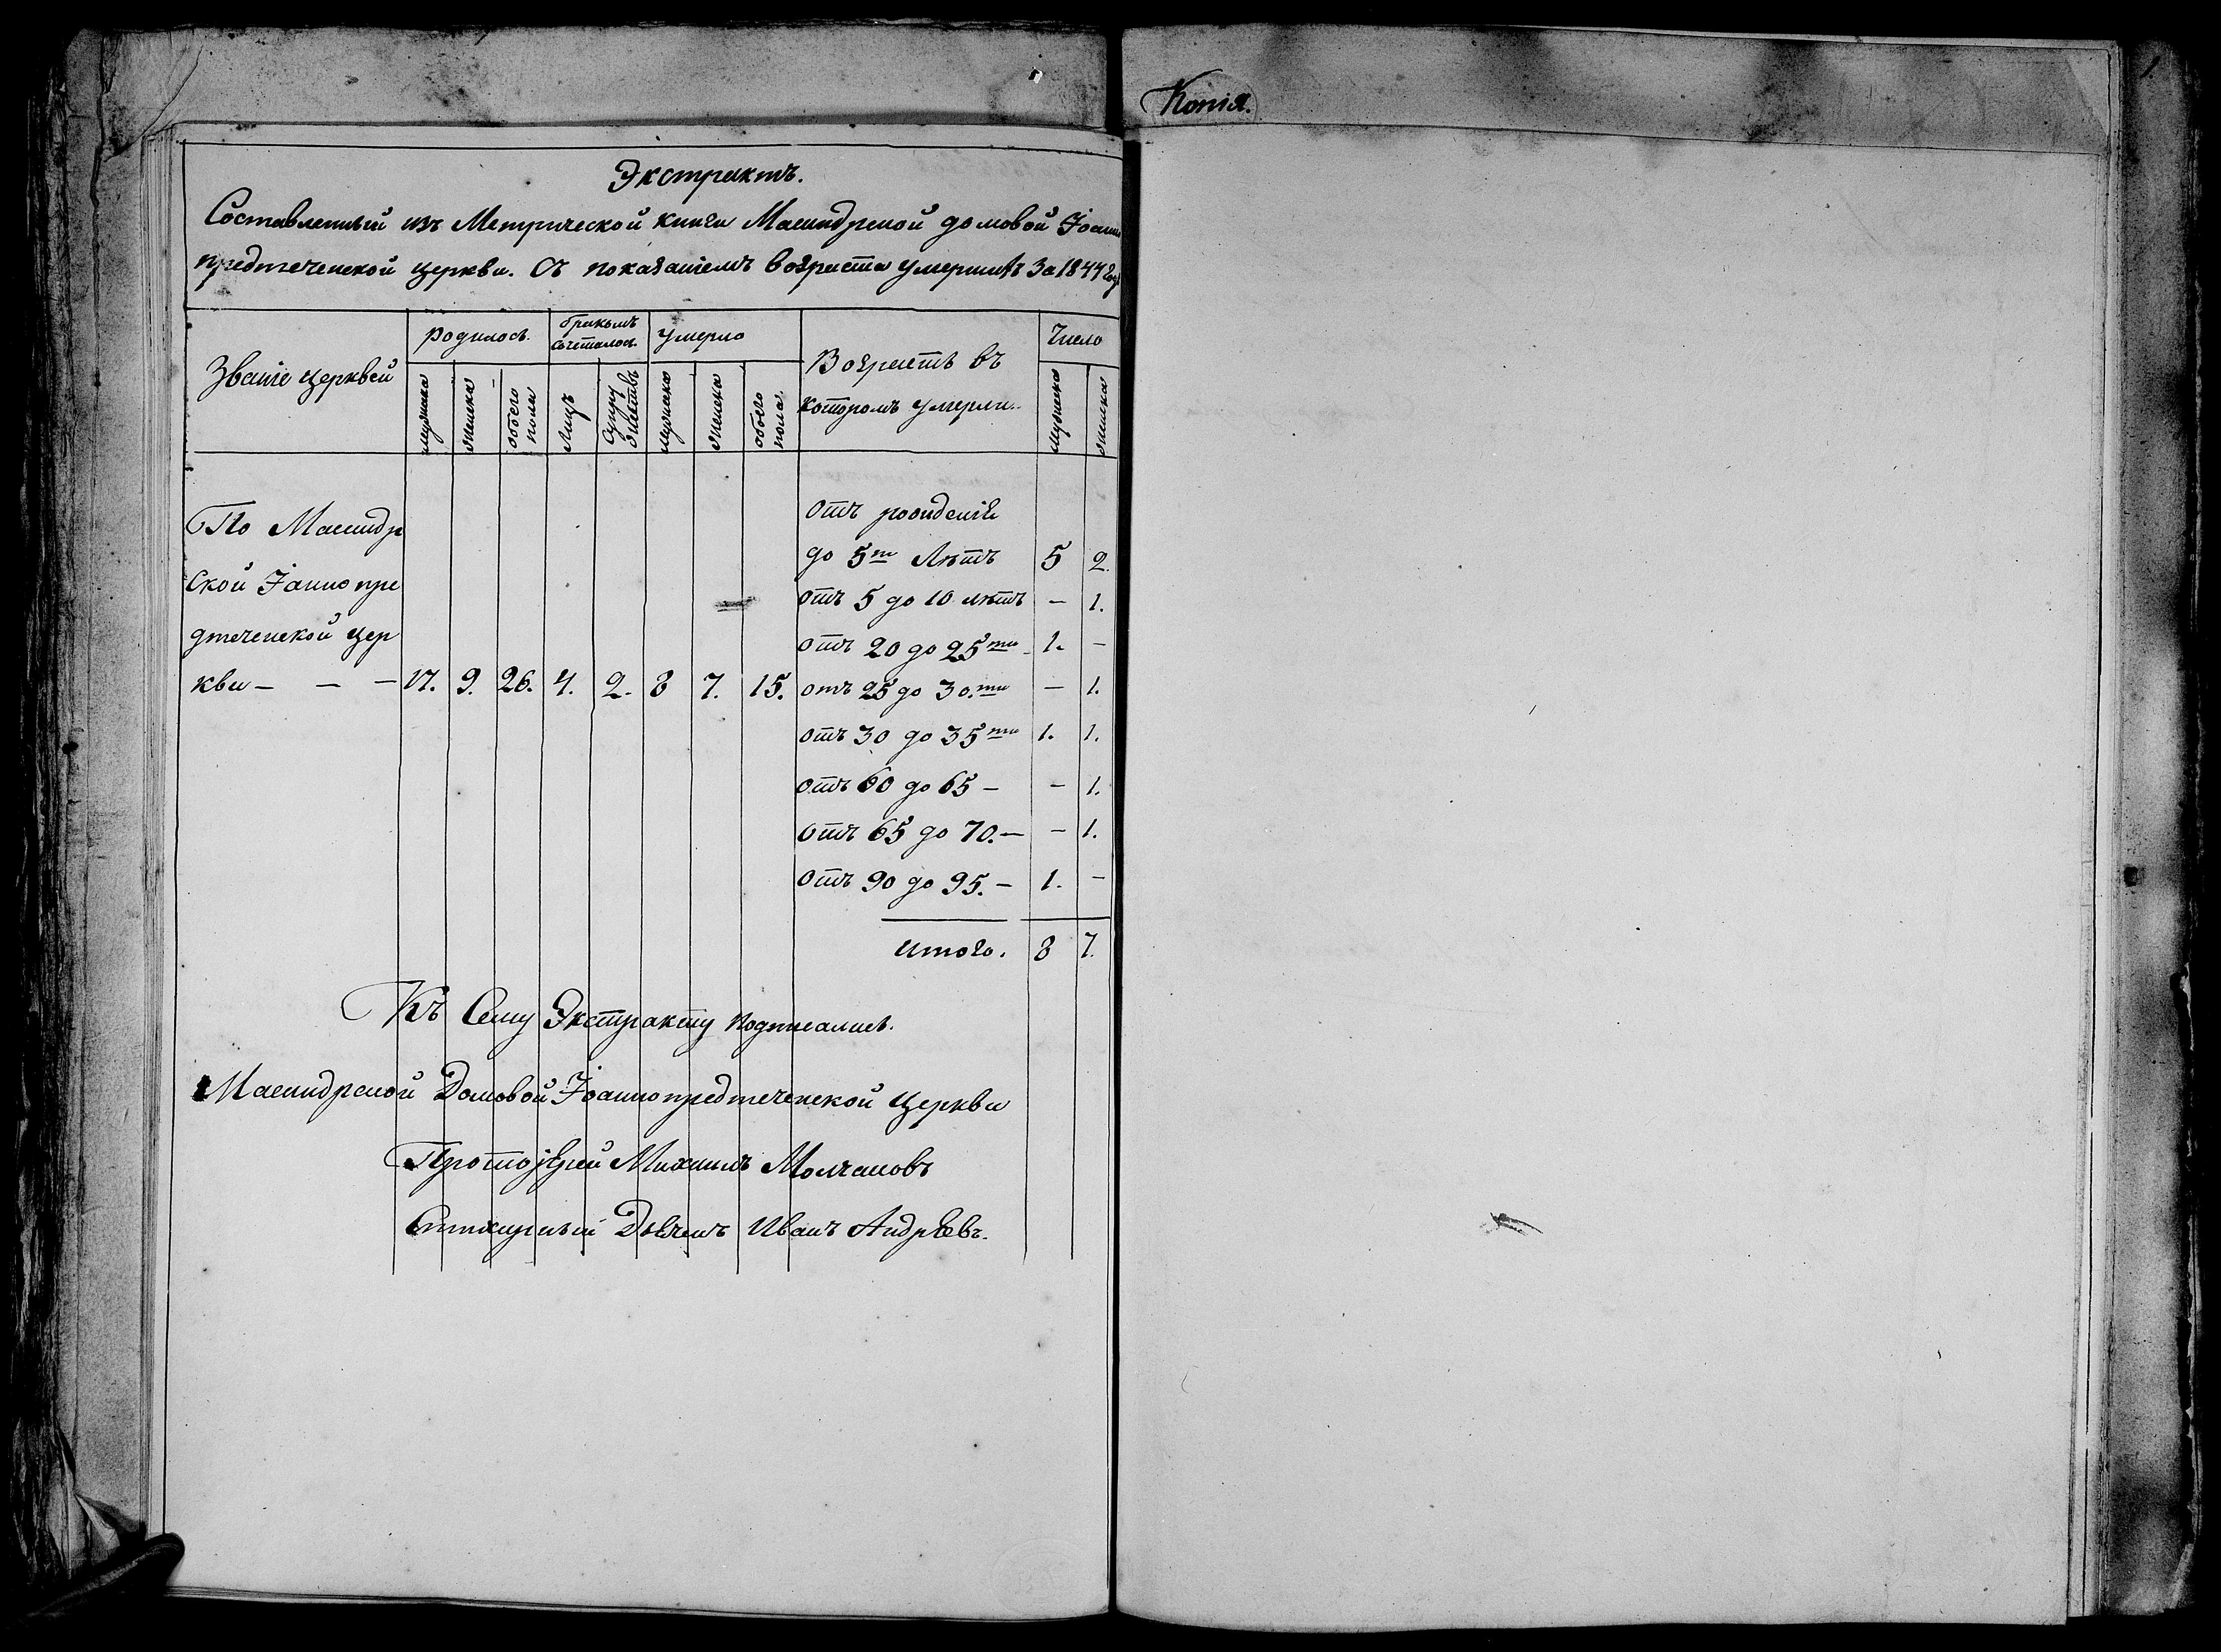 Экстрактъ.
Составленный изъ Метрической книги Масандрской домовой Іоанно
предтеченской церкви. Съ показаніемъ возраста умершихъ За 1844 годъ
Званіе церквей
родилось.
бракомъ сочеталось.
умерло
Возрастъ въ которомъ умерли.
Число
мужеска
женска
обоего пола
Лицъ
Супружествъ
мужеска
женска
обоего пола.
мужеска
женска
По Масандр
ской Іанно пре
дтеченской цер
кви — — — 17. 9. 26. 4. 2. 8 7. 15.
Отъ рожденія
до 5ти Лѣтъ 5 2.
отъ 5 до 10 лѣтъ — 1.
отъ 20 до 25ти 1. —
отъ 25 до 30.ти — 1.
отъ 30 до 35ти 1. 1.
отъ 60 до 65 — — 1.
отъ 65 до 70. — — 1.
отъ 90 до 95. — 1. —
Итого. 8 7.
Къ Сему Экстракту подписались.
Масандрской Домовой Іоаннопредтеченской Церкви
Протоіерей Михаилъ Молчановъ
Стихарный Дьячекъ Иванъ Андреевъ.
Копія.